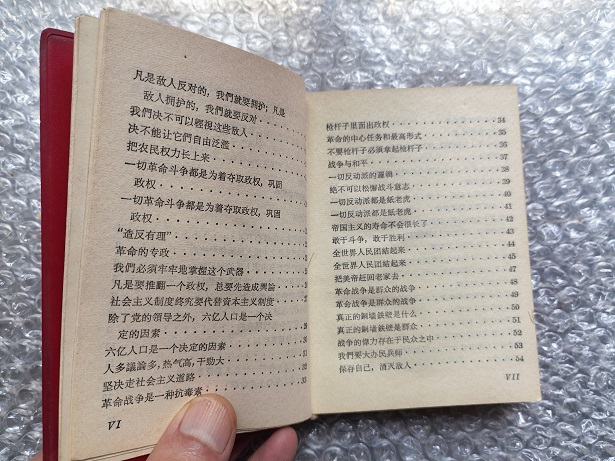 凡是敌人反对的，我們就要拥护；凡是
敌人拥护的，我們就要反对
我們决不可以輕視这些敌人
决不能让它們自由泛滥
把农民权力长上来
一切革命斗争都是为着夺取政权，巩固
政权
一切革命斗争都是为着夺取政权，巩固
政权
“造反有理”
革命的专政
我們必须牢牢地掌握这个武器
凡是要推翻一个政权，总要先造成輿論
社会主义制度终究要代替資本主义制度
除了党的領导之外，六亿人口是一个决
定的因素
六亿人口是一个决定的因素
人多議論多，热气高，干劲大
坚决走社会主义道路
革命战争是一种抗毒素 33
VI
枪杆子里面出政权 34
革命的中心任务和最高形式 35
不要枪杆子必须拿起枪杆子 36
战争与和平 37
一切反动派的邏輯 38
絕不可以松懈战斗意志 39
一切反动派都是紙老虎 40
一切反动派都是紙老虎 41
帝国主义的寿命不会很长了 42
敢于斗争，敢于胜利 43
全世界人民团結起来 44
全世界人民团結起来 45
把美帝赶回老家去 46
革命战争是群众的战争 48
革命战争是群众的战争 49
真正的銅墙鉄壁是什么 50
真正的銅墙鉄壁是群众 51
战争的偉力存在于民众之中 52
我們要大办民兵师 53
保存自己，消灭敌人 54
VII